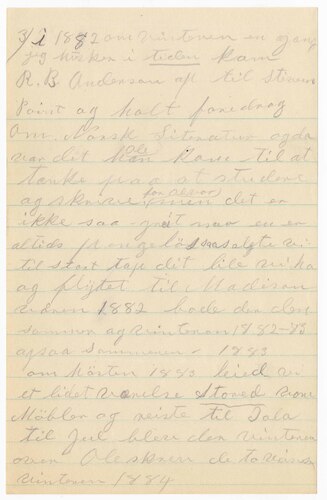 3/ i 1882 om vinteren en gang
jeg husker i tiden kam
R. B. Anderson op til Steven
Point og holt foredrag
om Norsk Literatur og da
var det Ole kom til at
tænke paa at studere
og skrive for alvor men det er
ikke saa når en er
altids pengeløs saa solgte vi
til stort tap dit lile vi ha
og flytet til Madison
våren 1882 bode der den
sommer og vinteren 1882-83
ogsaa sommeren - 1883
om Hösten 1883 leied vi
et lidet værelse stored vore
Möbler og reiste til Iola
til Jul blev der vinteren
over Ole skrev de to
vinteren 1884